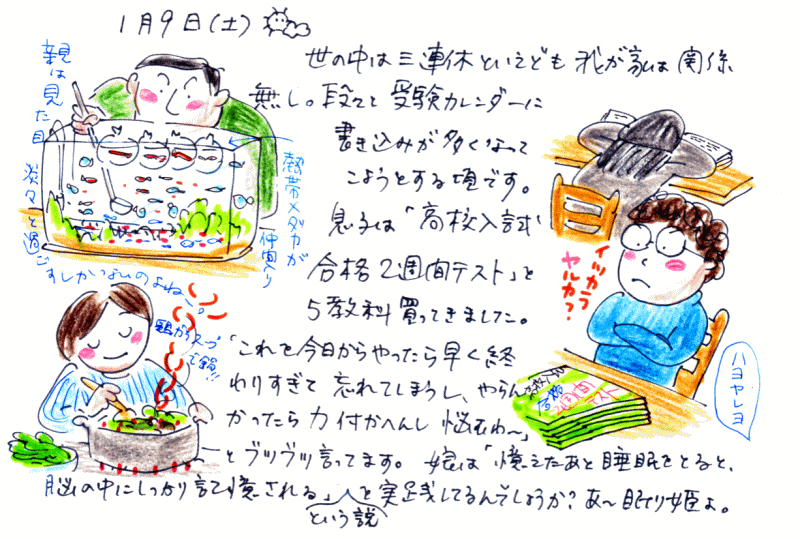 1月9日(土)
世の中は三連休といえども 我が家は関係
無し。段々と受験カレンダーに
書き込みが多くなって
こようとする頃です。
息子は「高校入試
合格2週間テスト」と
5教科買ってきました。
「これを今日からやったら早く終
わりすぎて 忘れてしまうし、やらん
かったら力付かへんし 悩むわ〜」
とブツブツ言ってます。娘は「憶えたあと睡眠をとると、
脳の中にしっかり記憶される」と実践してるんでしょうか?あ〜眠り姫よ。
という説
親は見た目
淡々と過ごすしかないのよね〜。
熱帯メダカが
仲間入り
鶏がらスープ
で鍋!!
イツカラ
ヤルカナ?
ハヨヤレヨ